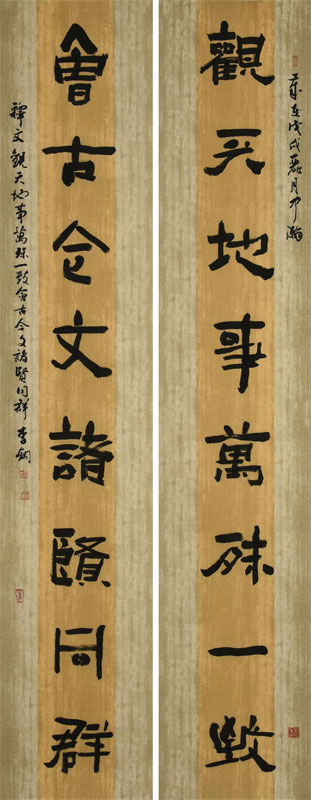 歲在戊戌
觀天地事萬殊一致
會古今文諸賢同群
釋文觀天地事萬殊一致會古今文諸賢同群李